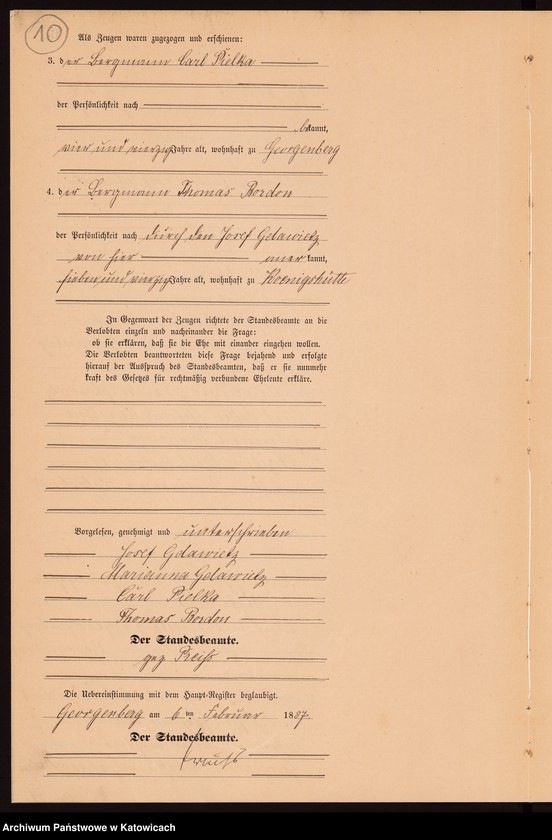 10
Als Zeugen waren zugezogen und erschienen:
3. der Bergmann Carl Pielka
der Persönlichkeit nach
bekannt,
vier und vierzig Jahre alt, wohnhaft zu Georgenberg
4. der Bergmann Thomas Bordon
der Persönlichkeit nach durch den Josef Gdawietz
von hier anerkannt,
sieben und vierzig Jahre alt, wohnhaft zu Koenigshütte
In Gegenwart der Zeugen richtete der Standesbeamte an die
Verlobten einzeln und nacheinander die Frage:
ob sie erklären, daß sie die Ehe mit einander eingehen wollen.
Die Verlobten beantworteten diese Frage bejahend und erfolgte
hierauf der Ausspruch des Standesbeamten, daß er sie nunmehr
kraft des Gesetzes für rechtmäßig verbundene Eheleute erkläre.
Vorgelesen, genehmigt und unterschrieben
Josef Gdawietz
Marianna Gdawietz
Carl Pielka
Thomas Bordon
Der Standesbeamte.
gez.
Die Uebereinstimmung mit dem Haupt-Register beglaubigt.
Georgenberg am 6ten Februar 1887.
Der Standesbeamte.
Archiwum Państwowe w Katowicach